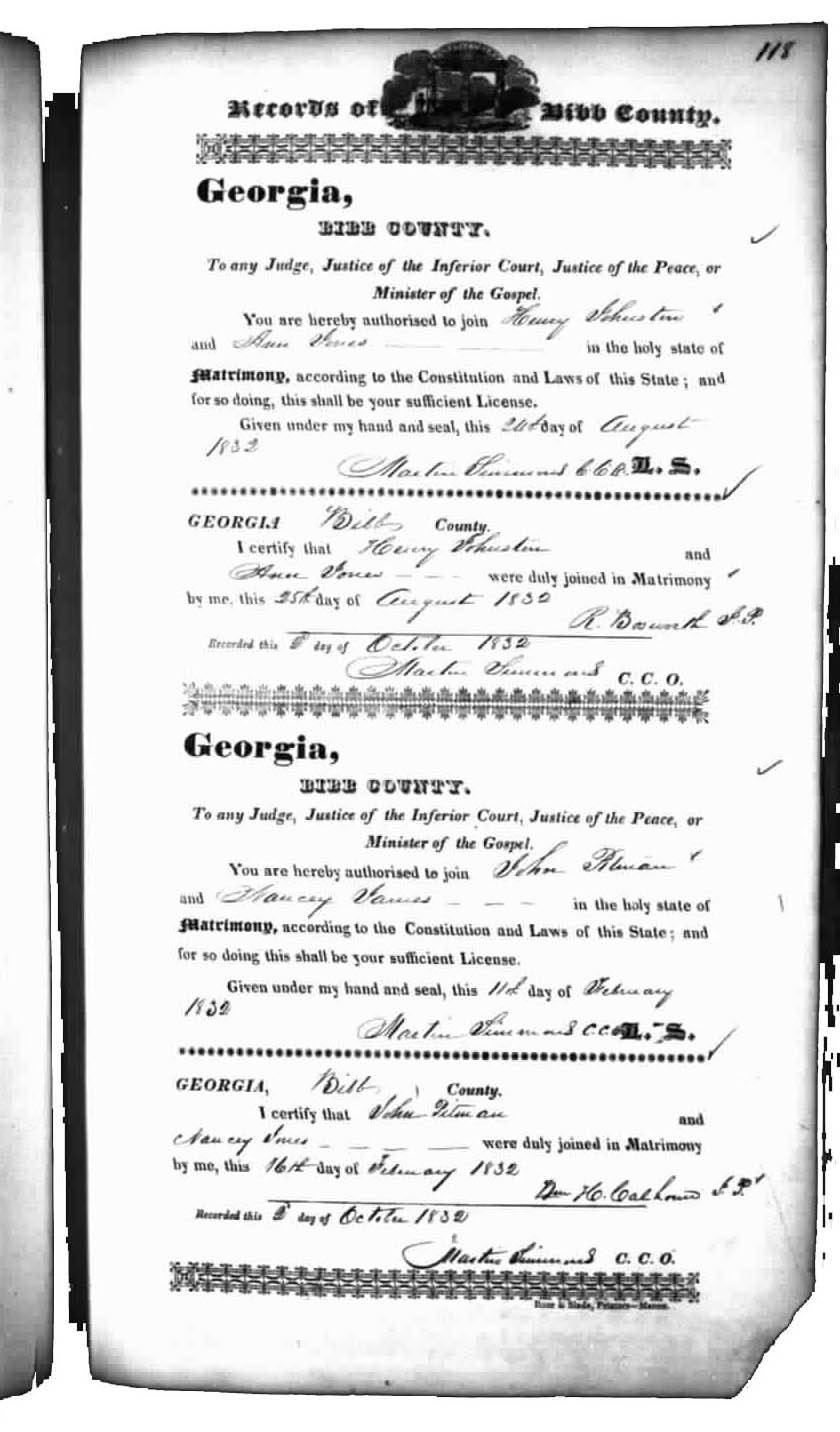 118
Records of Bibb County.
Georgia,
BIBB COUNTY.
To any Judge, Justice of the Inferior Court, Justice of the Peace, or
Minister of the Gospel.
You are hereby authorised to join Henry Johnston
and Ann Jones in the holy state of
Matrimony, according to the Constitution and Laws of this State; and
for so doing, this shall be your sufficient License.
Given under my hand and seal, this 24th day of August
1832
Martin Simmons C.C.O. L. S.
GEORGIA Bibb County.
I certify that Henry Johnston and
Ann Jones were duly joined in Matrimony
by me, this 25th day of August 1832
R. Bosworth J.P.
Recorded this 2d day of October 1832
Martin Simmons C. C. O.
Georgia,
BIBB COUNTY.
To any Judge, Justice of the Inferior Court, Justice of the Peace, or
Minister of the Gospel.
You are hereby authorised to join John Pitman
and Nancey James in the holy state of
Matrimony, according to the Constitution and Laws of this State; and
for so doing this shall be your sufficient License.
Given under my hand and seal, this 11th day of February
1832
Martin Simmons C.C.O. L. S.
GEORGIA, Bibb County.
I certify that John Pitman and
Nancey Jones were duly joined in Matrimony
by me, this 16th day of February 1832
H. Calhoun J.P.
Recorded this 2d day of October 1832
Martin Simmons C. C. O.
Rose & Slade, Printers—Macon.